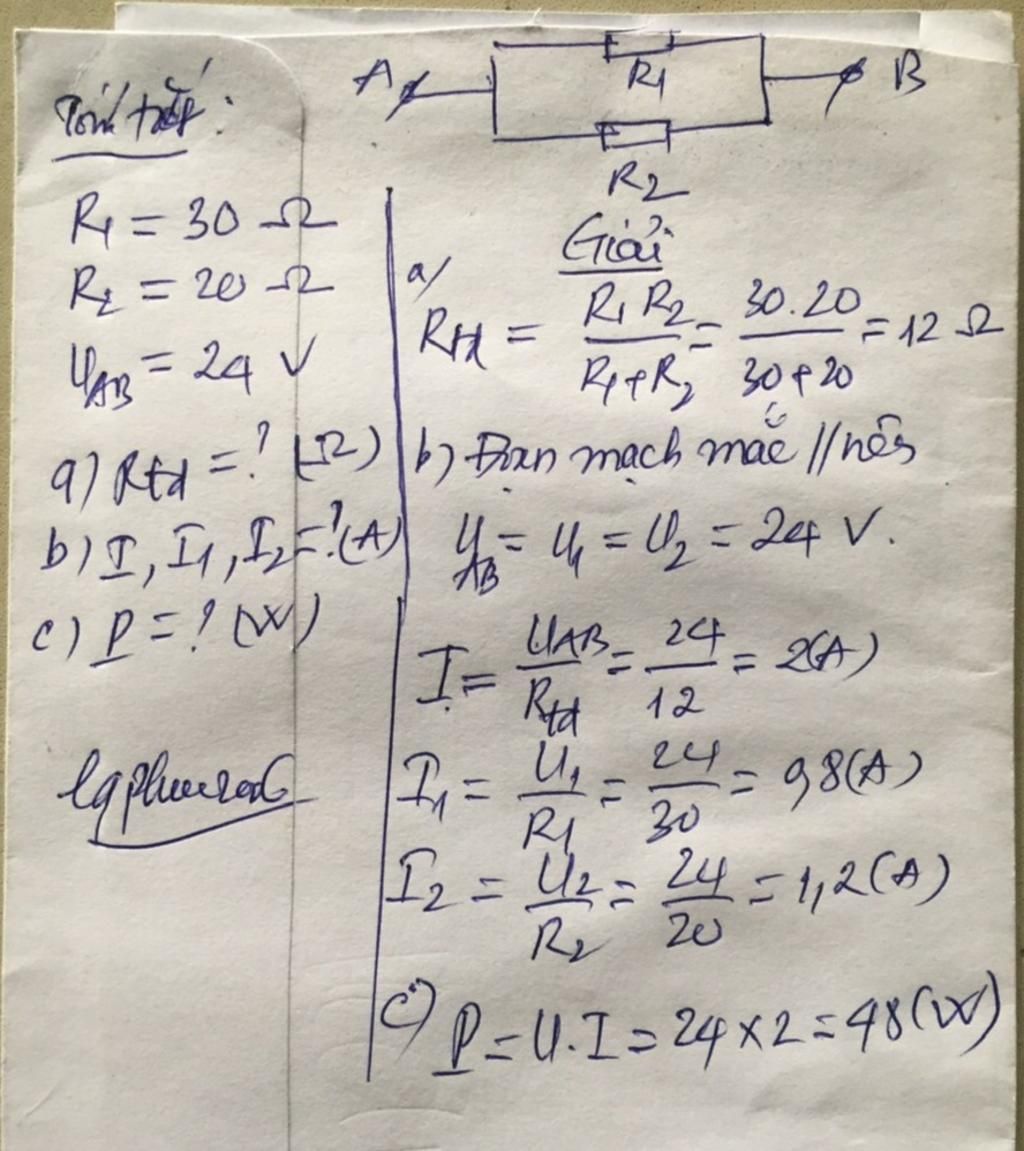 Tóm tắt:
R1 = 30 Ω
R2 = 20 Ω
UAB = 24 V
a) Rtđ = ? (Ω)
b) I, I1, I2 = ? (A)
c) P = ? (W)
A R1 B
R2
Giải
a/
Rtđ = R1 R2 / R1+R2 = 30.20 / 30+20 = 12 Ω
b) Đoạn mạch mắc // nên
UAB = U1 = U2 = 24 V.
I = UAB / Rtđ = 24 / 12 = 2(A)
I1 = U1 / R1 = 24 / 30 = 0,8(A)
I2 = U2 / R2 = 24 / 20 = 1,2(A)
c) P = U.I = 24 x 2 = 48(W)